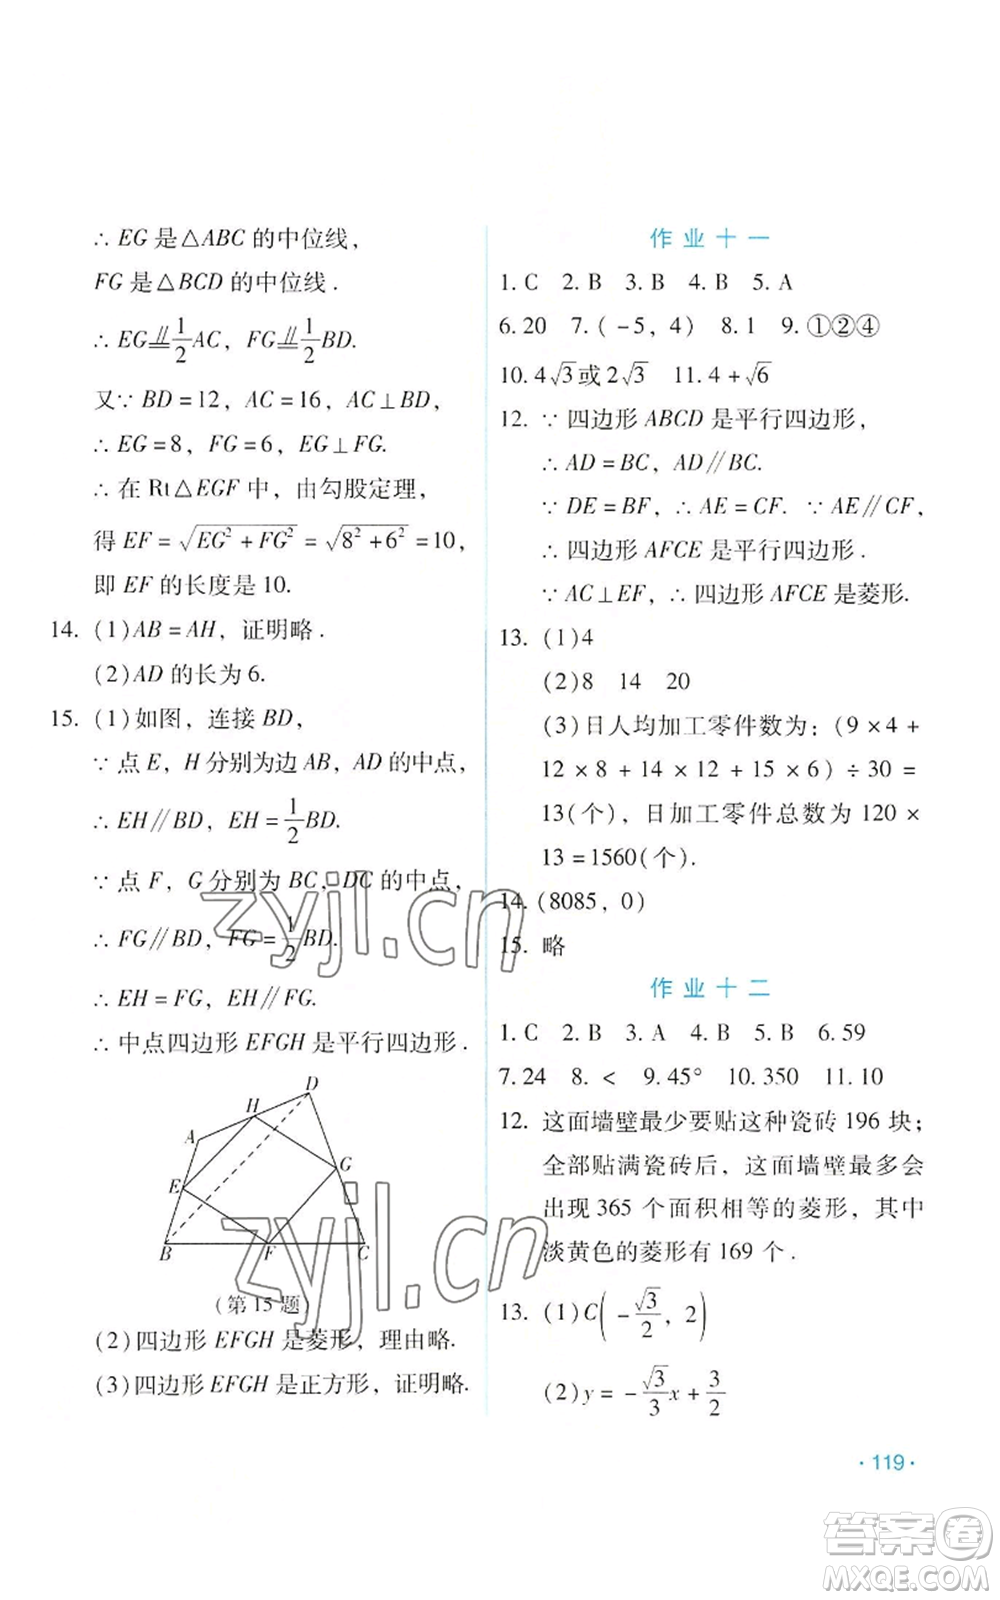 ∴ EG 是△ABC 的中位线，
FG 是△BCD 的中位线.
∴ EG⫽1/2AC，FG⫽1/2BD.
又∵ BD=12，AC=16，AC⊥BD，
∴ EG=8，FG=6，EG⊥FG.
∴ 在 Rt△EGF 中，由勾股定理，
得 EF=√(EG²+FG²)=√(8²+6²)=10，
即 EF 的长度是 10.
14. (1)AB=AH，证明略.
(2)AD 的长为 6.
15. (1)如图，连接 BD，
∵ 点 E，H 分别为边 AB，AD 的中点，
∴ EH∥BD，EH=1/2BD.
∵ 点 F，G 分别为 BC，DC 的中点，
∴ FG∥BD，FG=1/2BD.
∴ EH=FG，EH∥FG.
∴ 中点四边形 EFGH 是平行四边形.
D
H
A
G
E
B F C
(第 15 题)
(2)四边形 EFGH 是菱形，理由略.
(3)四边形 EFGH 是正方形，证明略.
作业十一
1. C 2. B 3. B 4. B 5. A
6. 20 7. (-5，4) 8. 1 9. ①②④
10. 4√3或 2√3 11. 4+√6
12. ∵ 四边形 ABCD 是平行四边形，
∴ AD=BC，AD∥BC.
∵ DE=BF，∴ AE=CF. ∵ AE∥CF，
∴ 四边形 AFCE 是平行四边形.
∵ AC⊥EF，∴ 四边形 AFCE 是菱形.
13. (1)4
(2)8 14 20
(3)日人均加工零件数为：(9×4+
12×8+14×12+15×6)÷30=
13(个)，日加工零件总数为 120×
13=1560(个).
14. (8085，0)
15. 略
作业十二
1. C 2. B 3. A 4. B 5. B 6. 59
7. 24 8. < 9. 45° 10. 350 11. 10
12. 这面墙壁最少要贴这种瓷砖 196 块；
全部贴满瓷砖后，这面墙壁最多会
出现 365 个面积相等的菱形，其中
淡黄色的菱形有 169 个.
13. (1)C(-√3/2，2)
(2)y=-√3/3x+3/2
·119·
zyjl.cn
zyjl.cn
答案卷
MXQE.COM